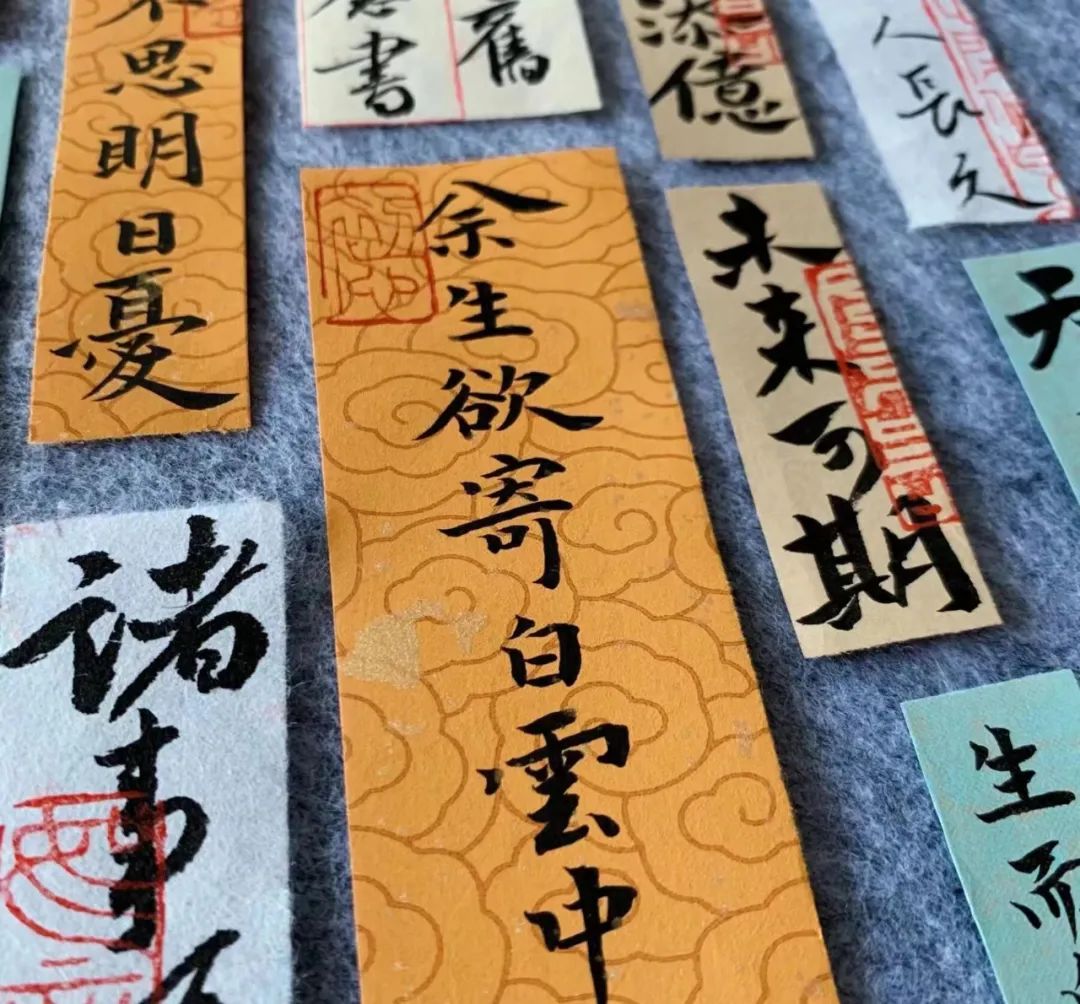 不思明日憂
書
舊
添億
人長久
余生欲寄白雲中
未来可期
天
诸事
生而